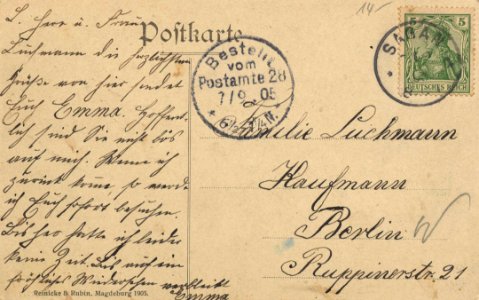 14.-
L. Herr u. Frau
Postkarte
Luchmann die herzlichsten
Grüße von hier sendet
Euch Emma. Hoffent-
lich sind Sie nicht bös
auf mich. Wenn ich
zurück komme, so werde
ich Euch sofort besuchen.
Bisher hatte ich leider
keine Zeit. Bis auf ein
fröhliches Wiedersehen verbleibt
Emma
Reinicke & Rubin, Magdeburg 1905.
Bestellt
vom
Postamte 28
7/9 05
SAGAN
5
DEUTSCHES REICH
Familie Luchmann
Kaufmann
Berlin
Ruppinerstr. 21